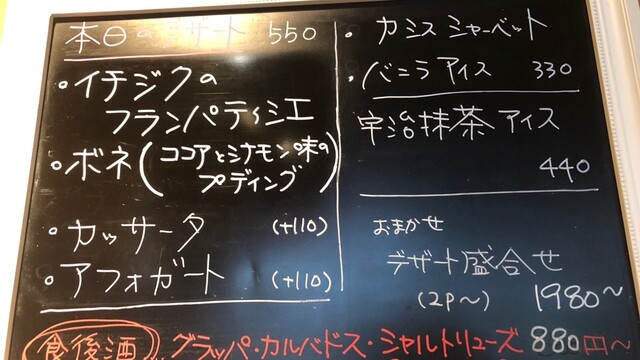 本日のデザート 550
・イチジクの
フランパティシエ
・ボネ(ココアとシナモン味の
プディング)
・カッサータ (+110)
・アフォガート (+110)
・カシスシャーベット
・バニラアイス 330
宇治抹茶アイス
440
おまかせ
デザート盛合せ
(2P〜) 1980〜
食後酒 グラッパ・カルバドス・シャルトリューズ 880円〜